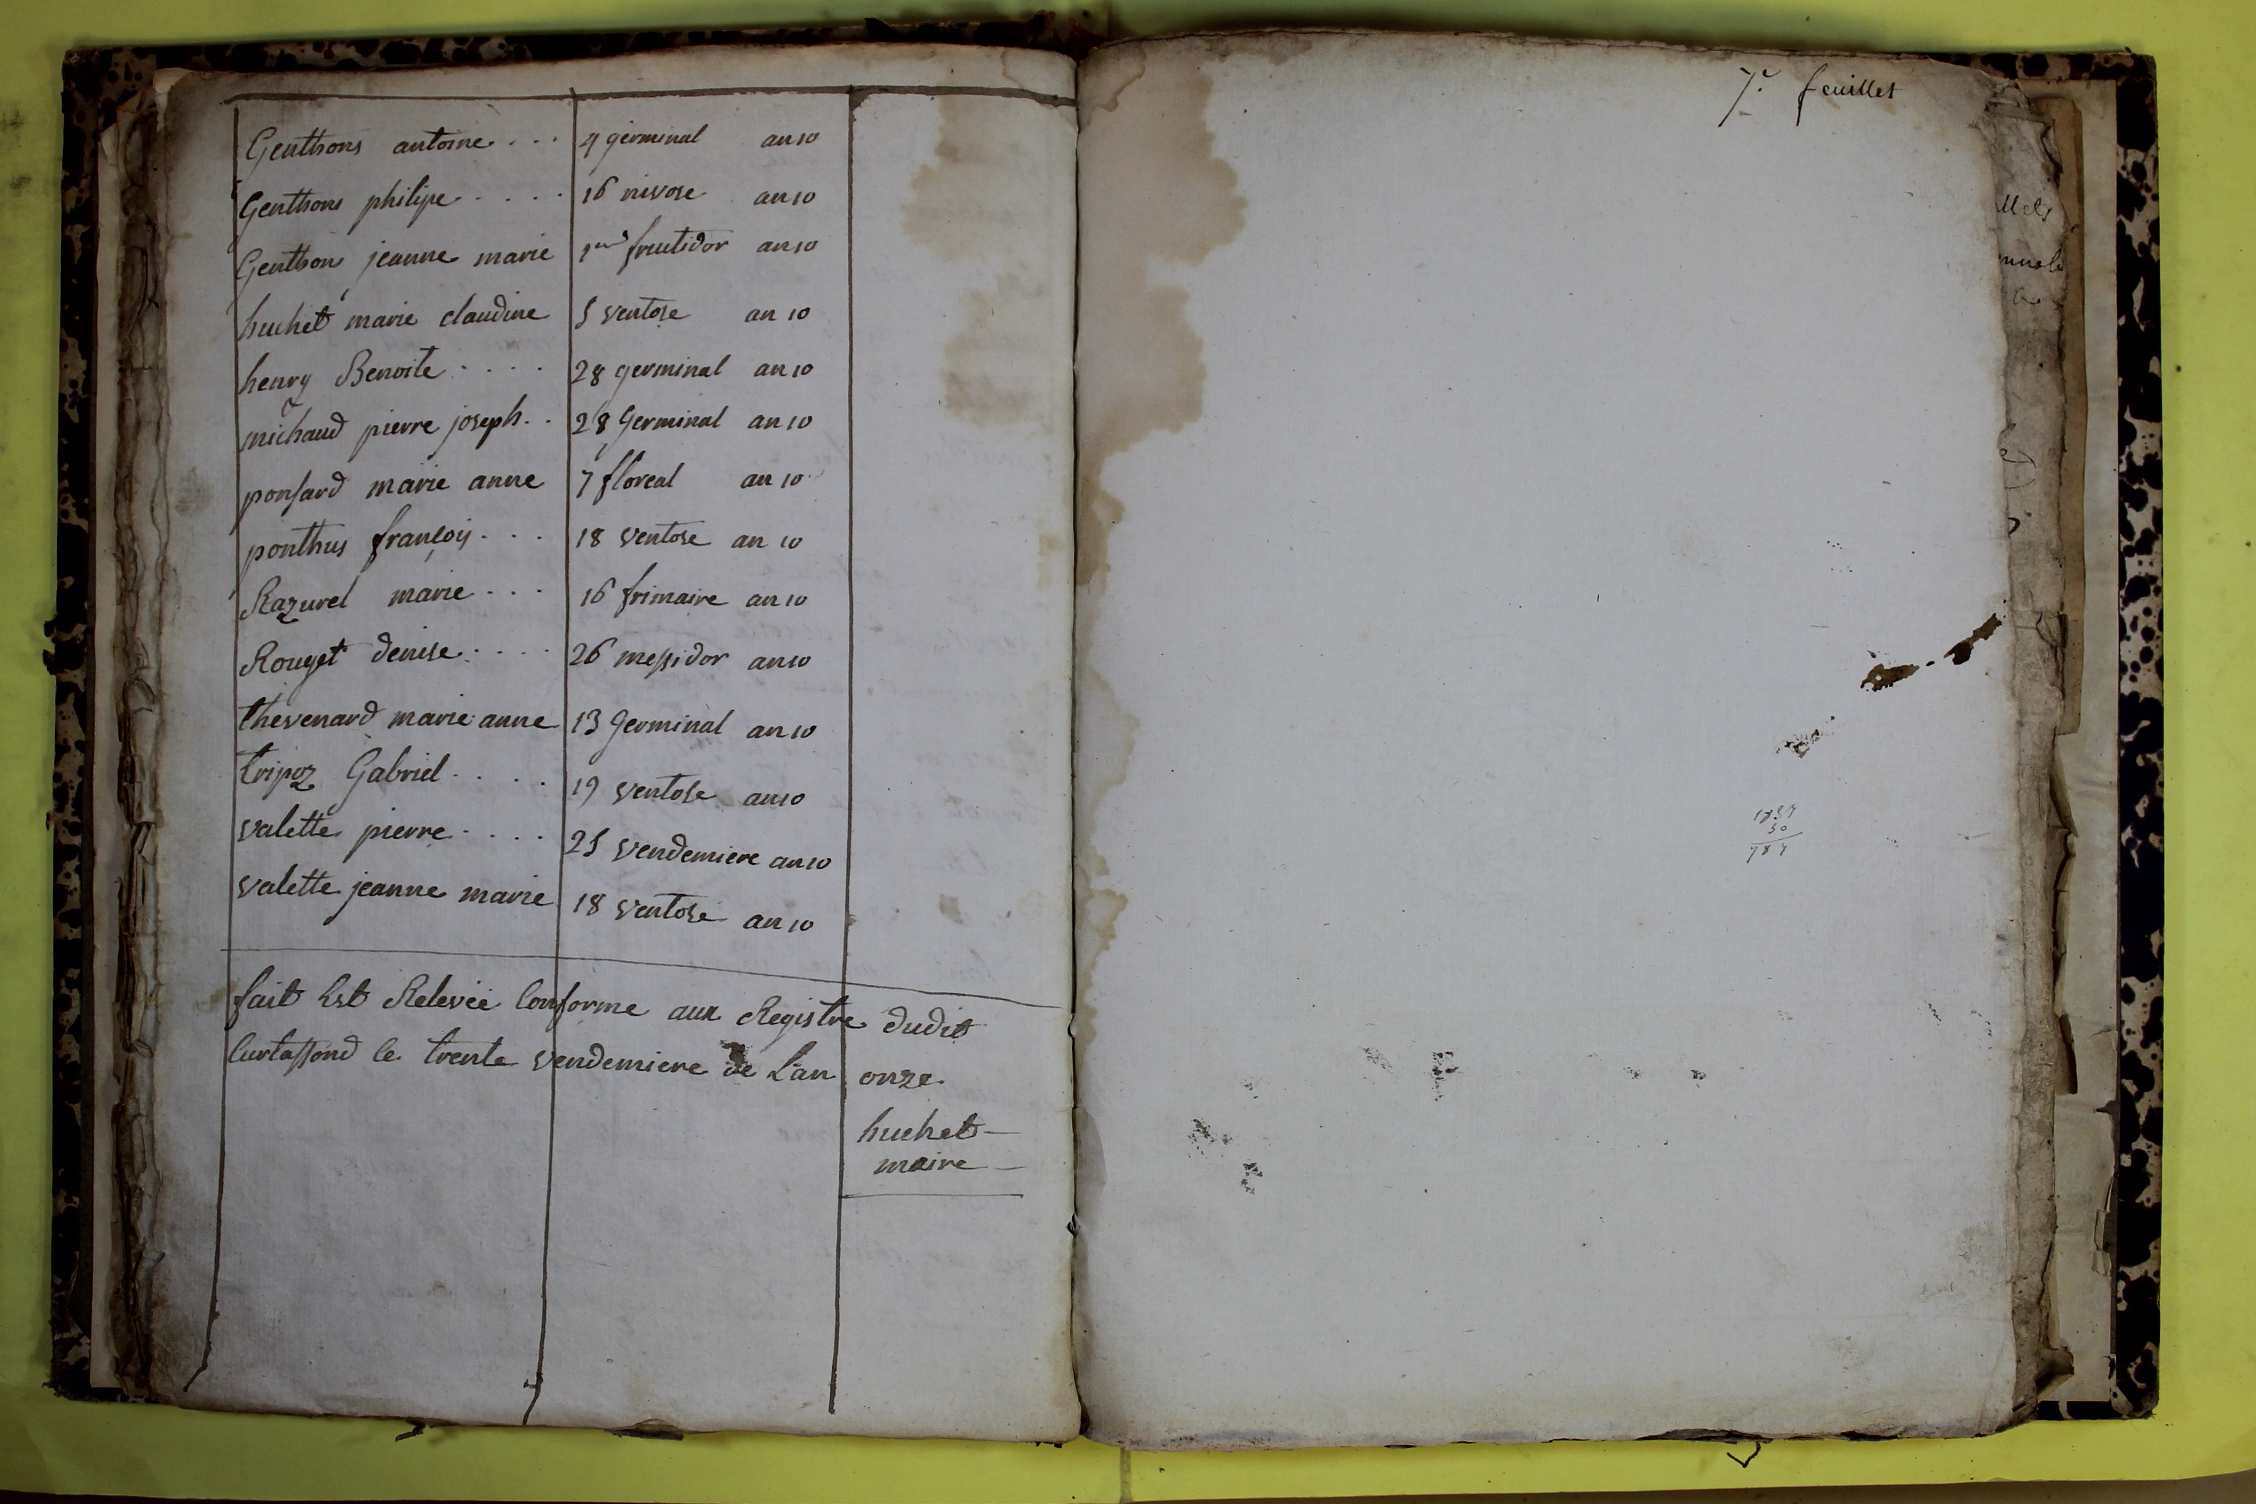 Genthons antoine . . . 4 germinal an 10
Genthons philipe . . . . . 16 nivose an 10
Genthons jeanne marie 1er fructidor an 10
huchet marie claudine 5 ventose an 10
henry Benoite . . . . 28 germinal an 10
michaud pierre joseph . . 28 Germinal an 10
ponsard marie anne 7 floreal an 10
ponthus françois . . . 18 ventose an 10
Razurel marie . . . 16 frimaire an 10
Rouget denise . . . . 26 messidor an 10
thevenard marie anne 13 Germinal an 10
tripoz Gabriel . . . . 19 ventose an 10
valette pierre . . . . 25 vendemiere an 10
valette jeanne marie 18 ventose an 10
fait Est Relevée Conforme aux Registre dudit
Curtassond le trente vendemiere de L'an onze
huchet
maire
7e feuillet
30